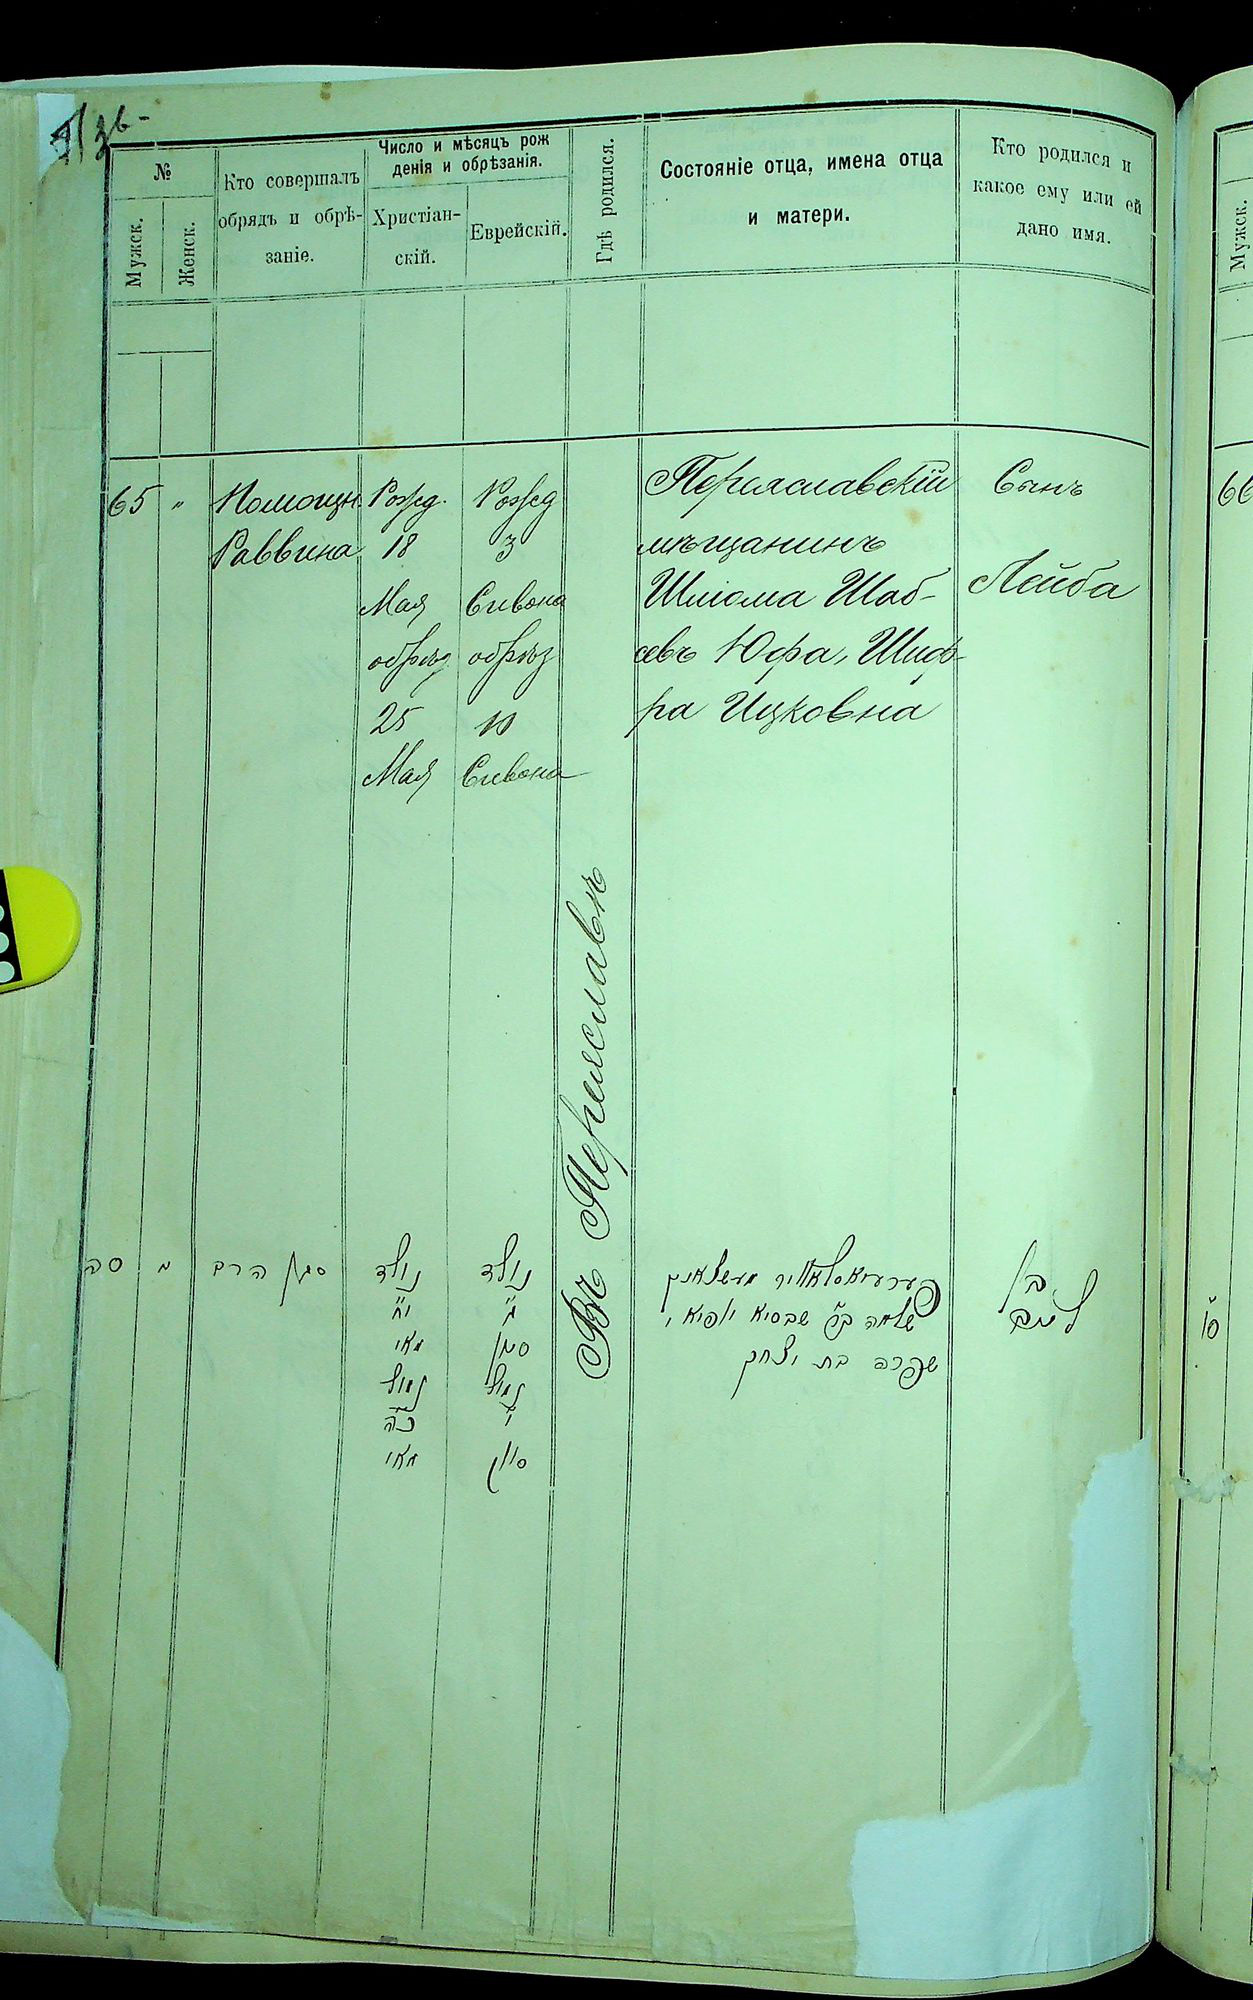 №
Мужск.
Женск.
Кто совершалъ
обрядъ и обрѣ-
заніе.
Число и мѣсяцъ рож
денія и обрѣзанія.
Христіан-
скій.
Еврейскій.
Гдѣ родился.
Состояніе отца, имена отца
и матери.
Кто родился и
какое ему или ей
дано имя.
Мужск.
65 "
Помощн.
Раввина
Рожд.
18
Мая
обрѣз
25
Мая
Рожд
3
Сивона
обрѣз
10
Сивона
Въ Переяславѣ
Переяславскій
мѣщанинъ
Шліома Шаб-
севъ Юфа, Шиф-
ра Ицковна
Сынъ
Лейба
66
סה
הרב
נולד
י"ח
מאי
נמול
כ"ה
מאי
נולד
ג"
סיון
נמול
י"
סיון
שלמה שבסיא יופיא,
שפרה בת יצחק
בן
ליב